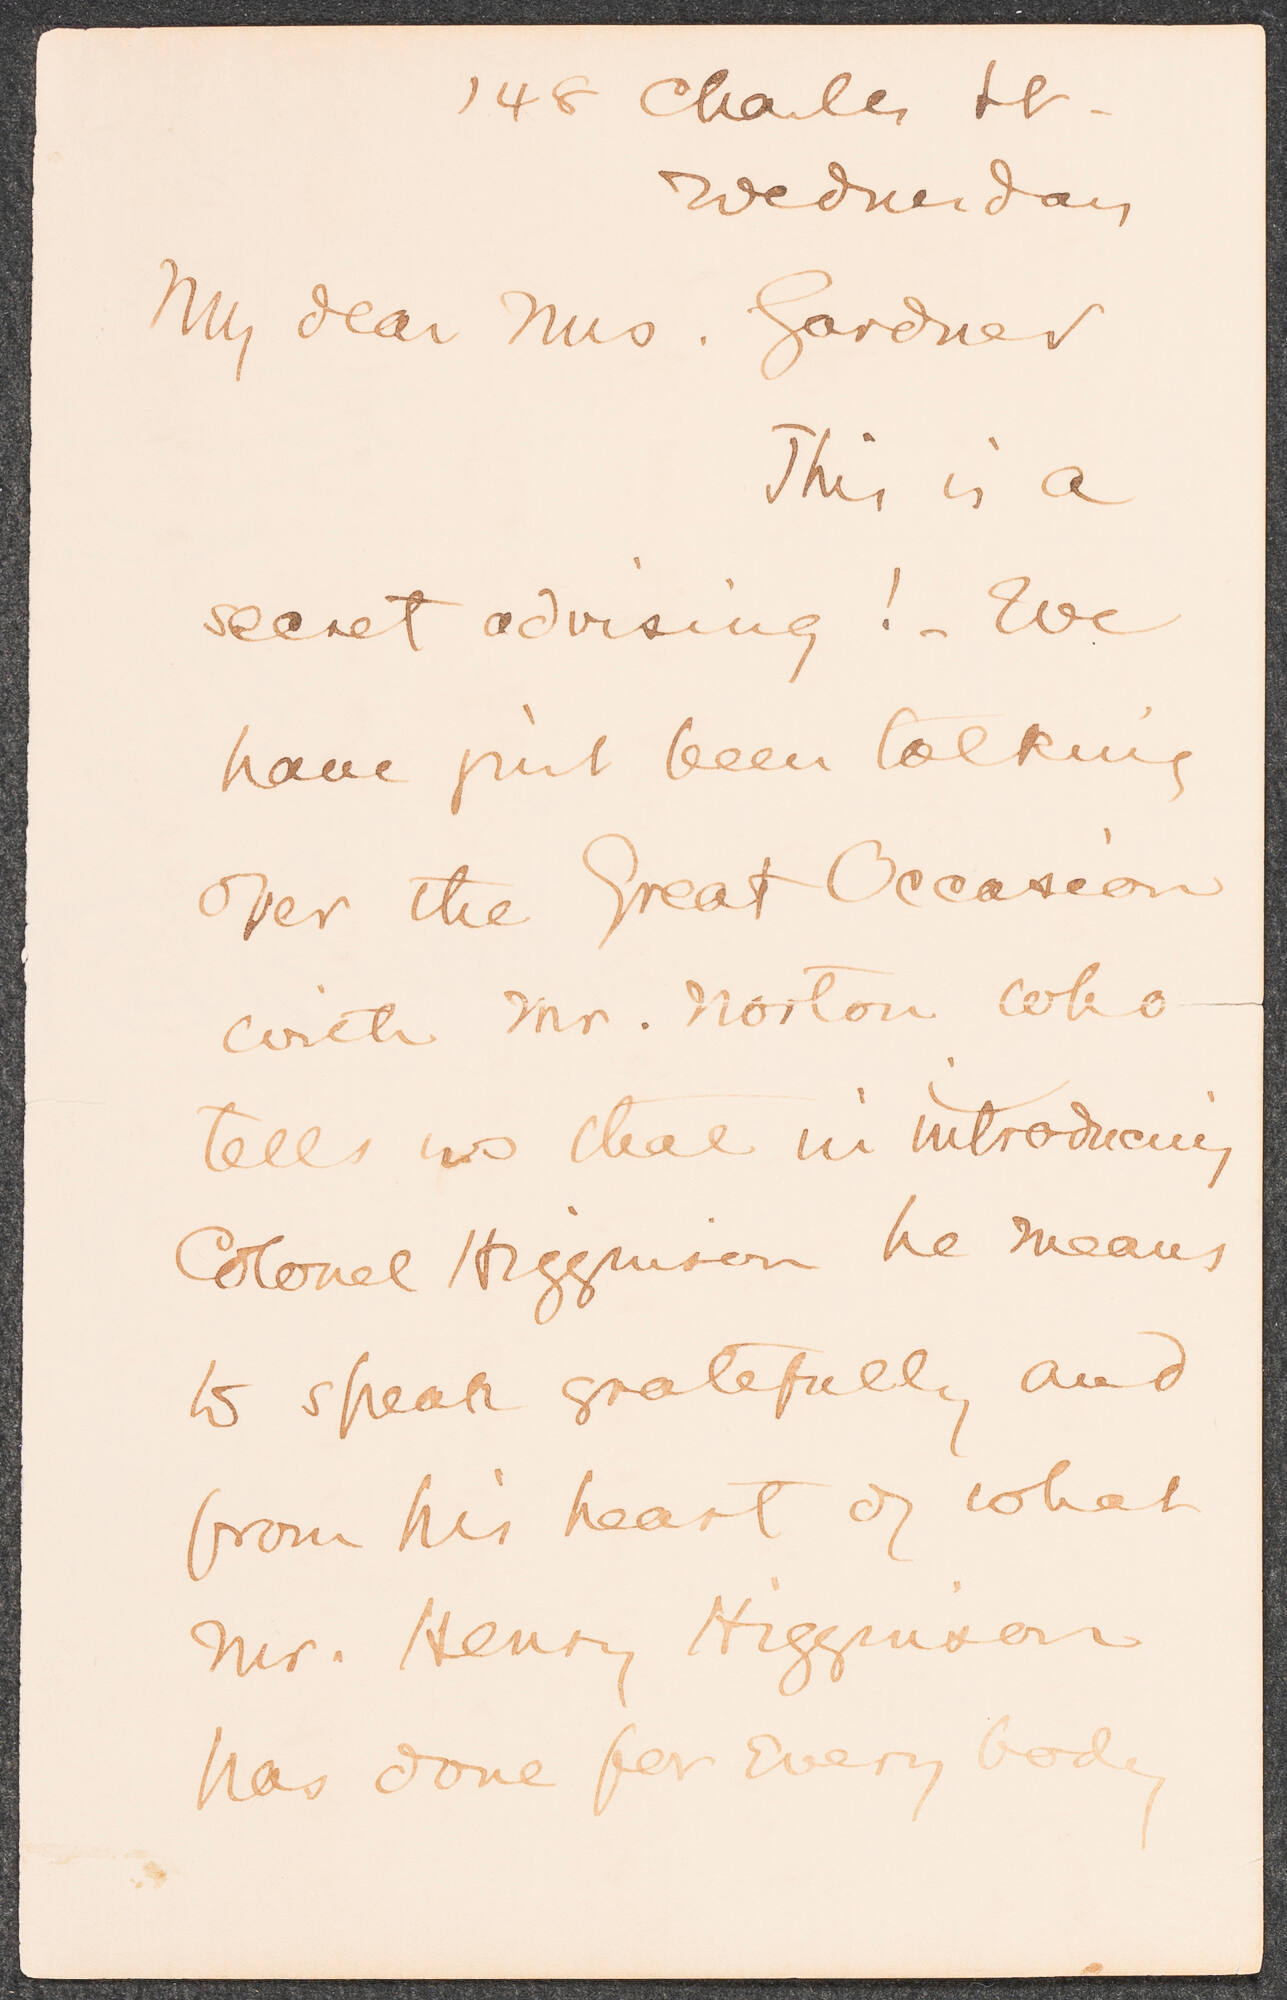 148 Charles St.
Wednesday
My dear Mrs. Gardner
This is a
secret advising! - We
have just been talking
over the Great Occasion
with Mr. Norton who
tells us that in introducing
Colonel Higginson he means
to speak gratefully and
from his heart of what
Mr. Henry Higginson
has done for every body